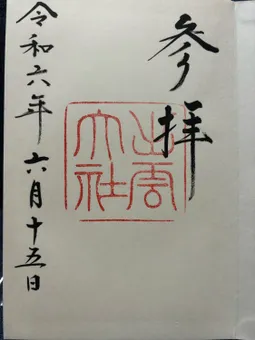 参拝
出雲
大社
令和六年 六月十五日